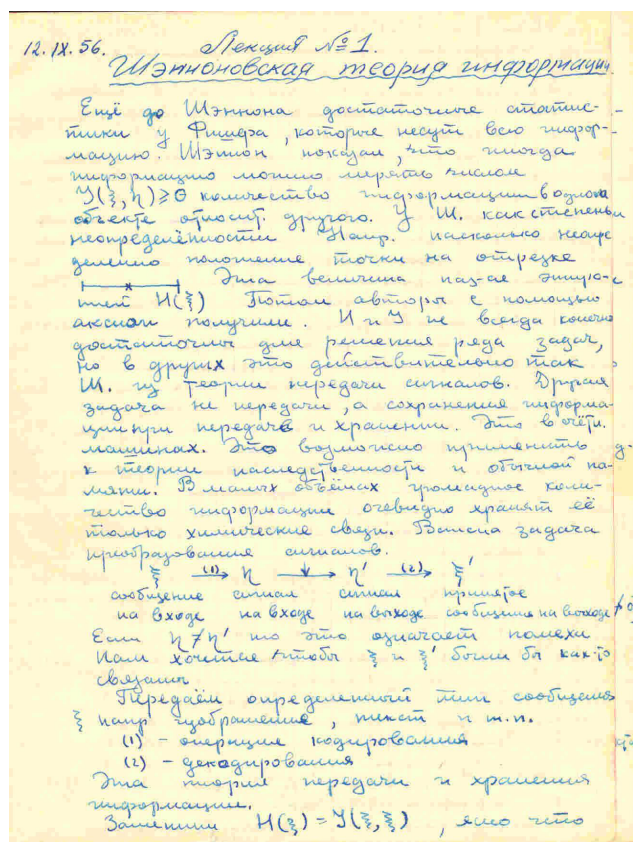 12.IX.56. Лекция №1.
Шэнноновская теория информации.
Ещё до Шэннона достаточные статис-
тики у Фишера, которые несут всю инфор-
мацию. Шэннон показал, что иногда
информацию можно мерять числом
J(ξ, η) ⩾ 0 количество информации в одном
объекте относит. другого. У Ш. как степень
неопределённости Напр. насколько неопре
делённо положение точки на отрезке
Эта величина наз-ся энтро-
пией H(ξ) Потом авторы с помощью
аксиом получили. H и J не всегда конечно
достаточны для решения ряда задач,
но в других это действительно так
Ш. из теории передачи сигналов. Другая
задача не передачи, а сохранения информа-
ции при передаче и хранении. Это в счётн.
машинах. Это возможно применить
к теории наследственности и обычной па-
мяти. В малых объёмах громадное коли-
чество информации очевидно хранят её
только химические связи. Важна задача
преобразования сигналов.
ξ (1)→ η → η′ (2)→ ξ′
сообщение сигнал сигнал принятое
на входе на входе на выходе сообщение на выходе
Если η ≠ η′ то это означает помехи
Нам хочется чтобы ξ и ξ′ были бы как-то
связаны
Передаём определенный тип сообщения
ξ напр изображение, текст и т.п.
(1) – операция кодирования
(2) – декодирования
Эта теория передачи и хранения
информации.
Заметим H(ξ) = J(ξ, ξ), ясно что